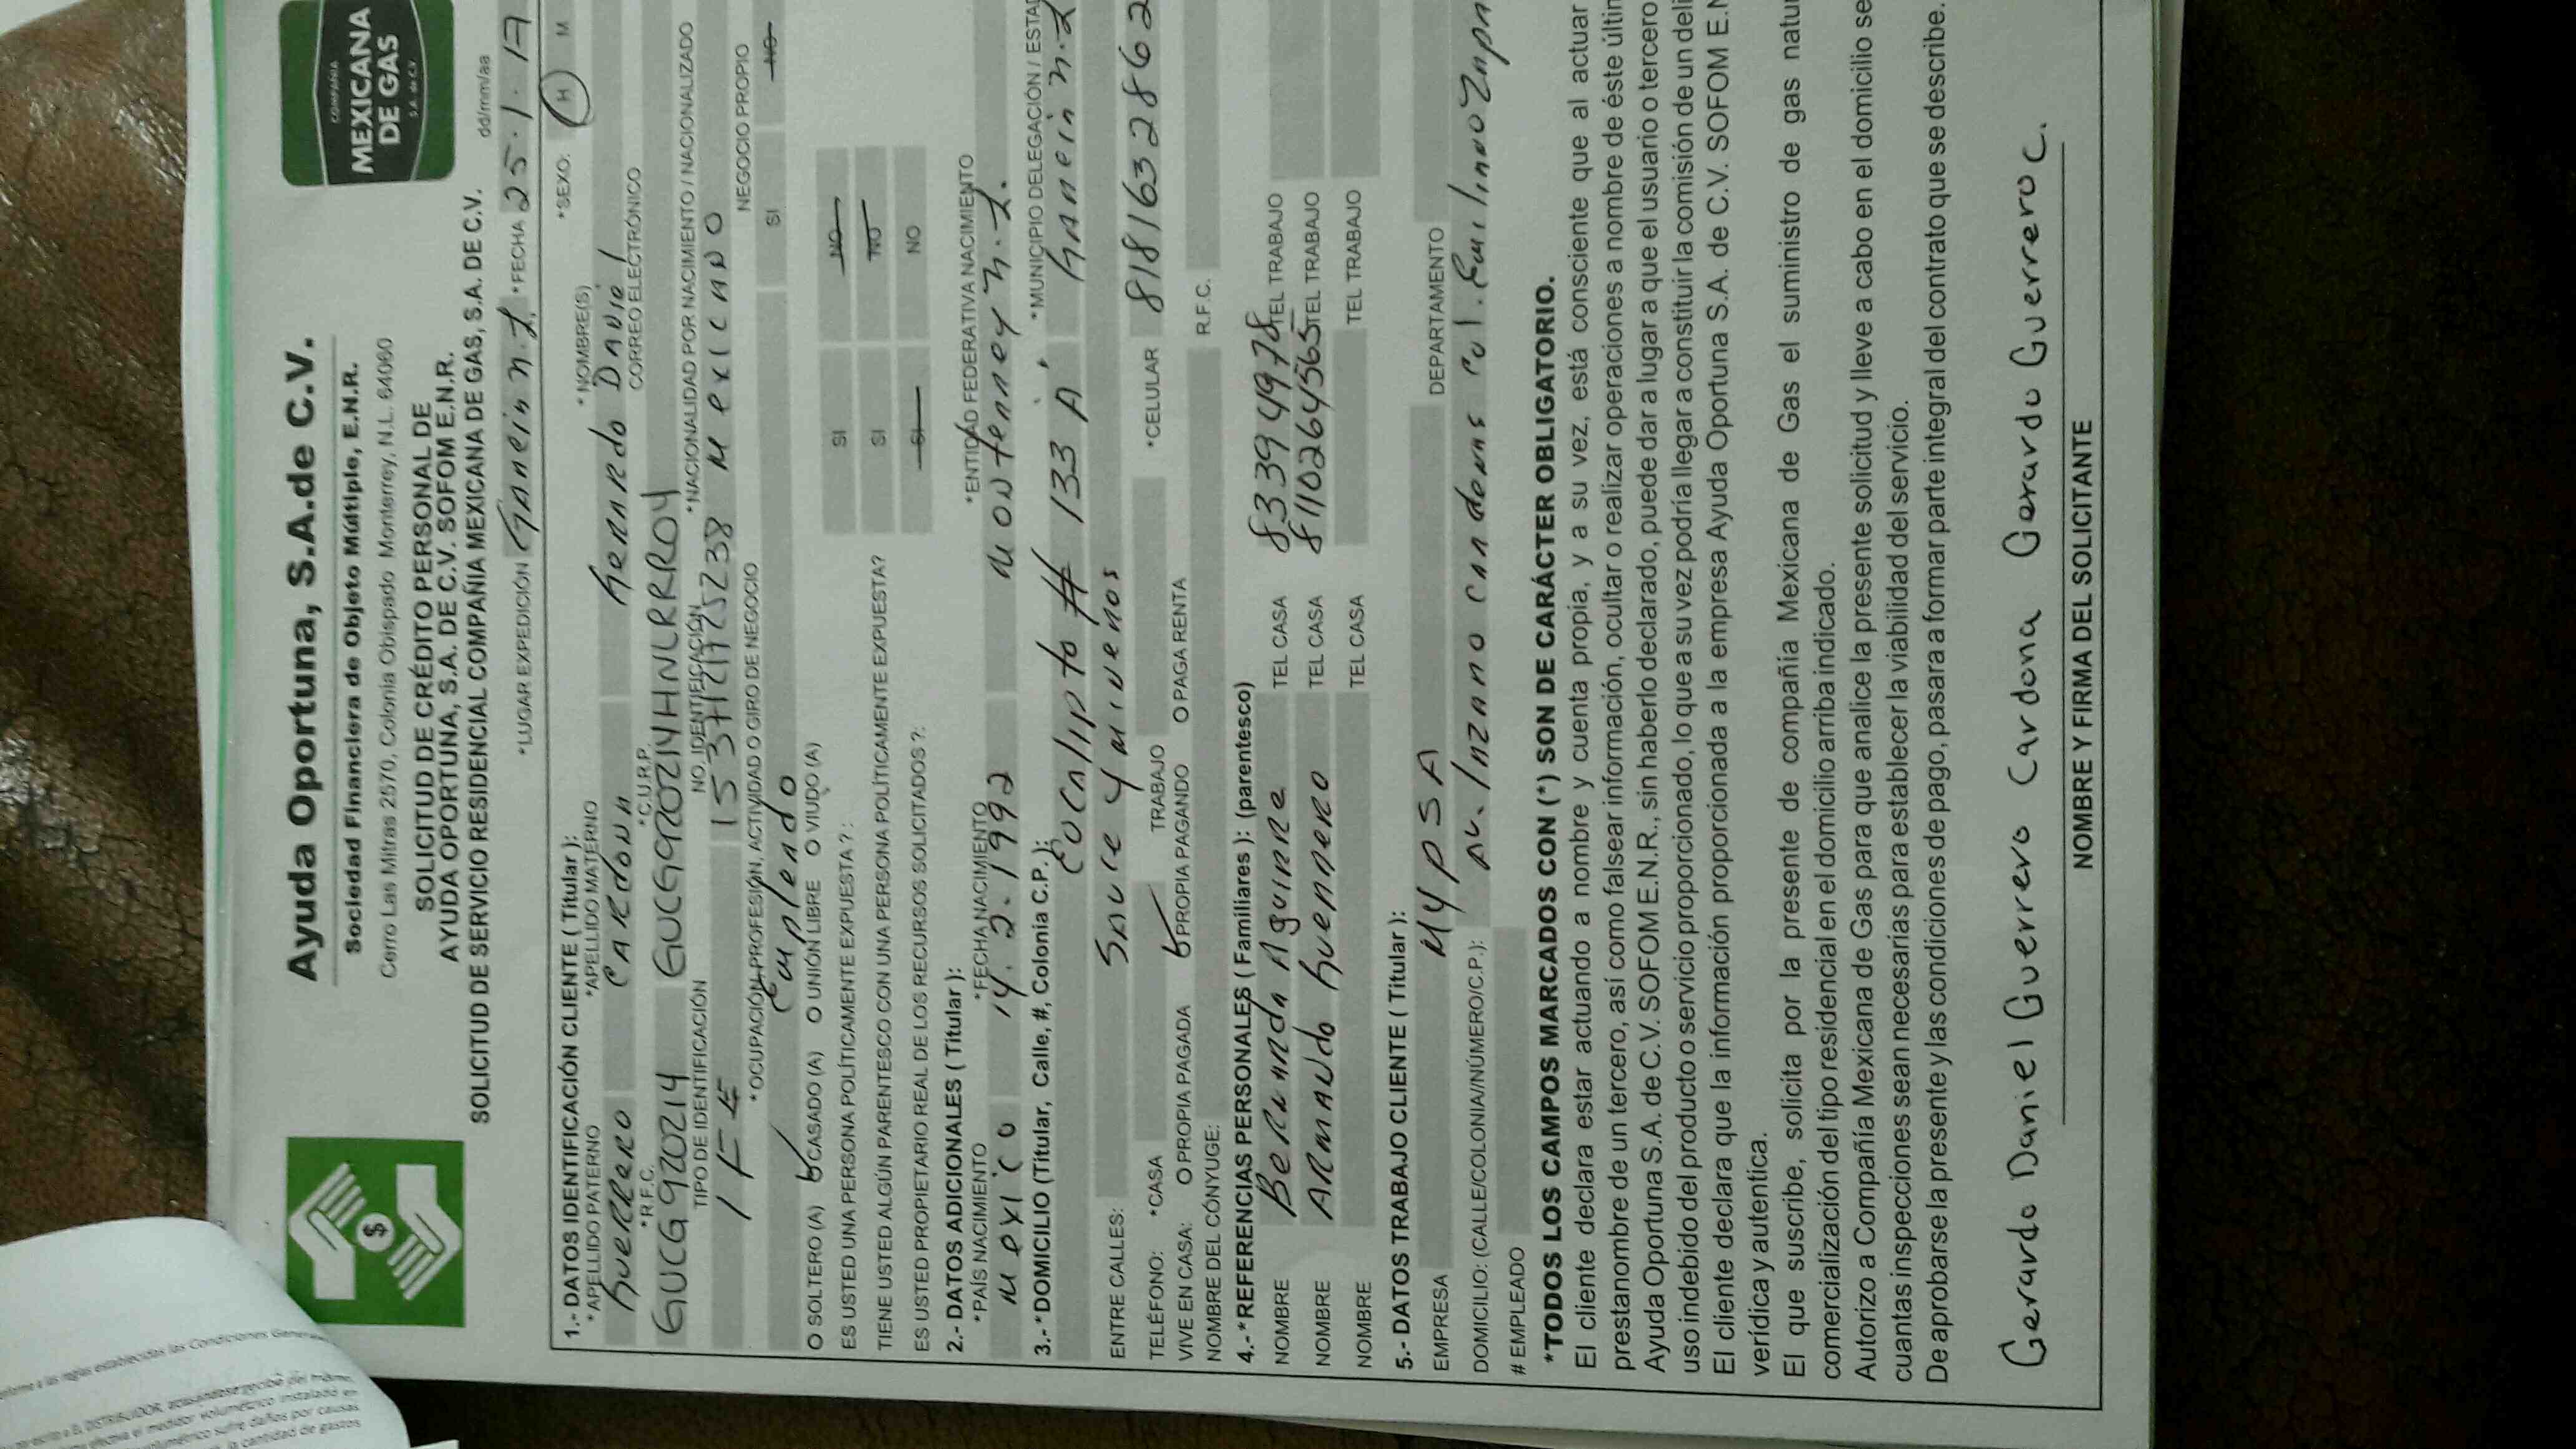 Ayuda Oportuna, S.A.de C.V.
Sociedad Financiera de Objeto Múltiple, E.N.R.
Cerro Las Mitras 2570, Colonia Obispado Monterrey, N.L. 64060
COMPAÑIA
MEXICANA
DE GAS
S.A. de C.V.
SOLICITUD DE CRÉDITO PERSONAL DE
AYUDA OPORTUNA, S.A. DE C.V. SOFOM E.N.R.
SOLICITUD DE SERVICIO RESIDENCIAL COMPAÑIA MEXICANA DE GAS, S.A. DE C.V.
dd/mm/aa
*LUGAR EXPEDICIÓN García N.L. *FECHA 25.1.17
1.- DATOS IDENTIFICACIÓN CLIENTE ( Titular ):
*APELLIDO PATERNO *APELLIDO MATERNO *NOMBRE(S) *SEXO: H M
Guerrero Cardona Gerardo Daniel
*R.F.C. *C.U.R.P. CORREO ELECTRÓNICO
GUCG920214 GUCG920214HNLRRR04
TIPO DE IDENTIFICACIÓN NO. IDENTIFICACIÓN *NACIONALIDAD POR NACIMIENTO / NACIONALIZADO
IFE Mexicano
*OCUPACIÓN,PROFESIÓN, ACTIVIDAD O GIRO DE NEGOCIO NEGOCIO PROPIO
Empleado SI NO
O SOLTERO (A) O CASADO (A) O UNIÓN LIBRE O VIUDO (A)
ES USTED UNA PERSONA POLÍTICAMENTE EXPUESTA ? : SI NO
TIENE USTED ALGÚN PARENTESCO CON UNA PERSONA POLÍTICAMENTE EXPUESTA? SI NO
ES USTED PROPIETARIO REAL DE LOS RECURSOS SOLICITADOS ?: SI NO
2.- DATOS ADICIONALES ( Titular ):
*PAÍS NACIMIENTO *FECHA NACIMIENTO *ENTIDAD FEDERATIVA NACIMIENTO
Mexico 14.2.1992 Monterrey N.L.
3.-*DOMICILIO (Titular, Calle, #, Colonia C.P.): *MUNICIPIO DELEGACIÓN / ESTAD
Eucalipto # 133 A García N.L
ENTRE CALLES: Sauce y
TELÉFONO: *CASA TRABAJO *CELULAR 8181632862
VIVE EN CASA: O PROPIA PAGADA O PROPIA PAGANDO O PAGA RENTA
NOMBRE DEL CÓNYUGE: R.F.C.
4.-*REFERENCIAS PERSONALES ( Familiares ): (parentesco)
NOMBRE Berunda Aguirre TEL CASA 83394978 TEL TRABAJO
NOMBRE Armando Guerrero TEL CASA 8110264565 TEL TRABAJO
NOMBRE TEL CASA TEL TRABAJO
5.- DATOS TRABAJO CLIENTE ( Titular ):
EMPRESA MYPSA DEPARTAMENTO
DOMICILIO: (CALLE/COLONIA/NÚMERO/C.P.): Av. Cardenas Col.
# EMPLEADO
*TODOS LOS CAMPOS MARCADOS CON (*) SON DE CARÁCTER OBLIGATORIO.
El cliente declara estar actuando a nombre y cuenta propia, y a su vez, está consciente que al actuar
prestanombre de un tercero, así como falsear información, ocultar o realizar operaciones a nombre de éste últim
Ayuda Oportuna S.A. de C.V. SOFOM E.N.R., sin haberlo declarado, puede dar a lugar a que el usuario o tercero
uso indebido del producto o servicio proporcionado, lo que a su vez podría llegar a constituir la comisión de un deli
El cliente declara que la información proporcionada a la empresa Ayuda Oportuna S.A. de C.V. SOFOM E.N
verídica y autentica.
El que suscribe, solicita por la presente de compañía Mexicana de Gas el suministro de gas natur
comercialización del tipo residencial en el domicilio arriba indicado.
Autorizo a Compañía Mexicana de Gas para que analice la presente solicitud y lleve a cabo en el domicilio se
cuantas inspecciones sean necesarias para establecer la viabilidad del servicio.
De aprobarse la presente y las condiciones de pago, pasara a formar parte integral del contrato que se describe.
Gerardo Daniel Guerrero Cardona Gerardo Guerrero C.
NOMBRE Y FIRMA DEL SOLICITANTE